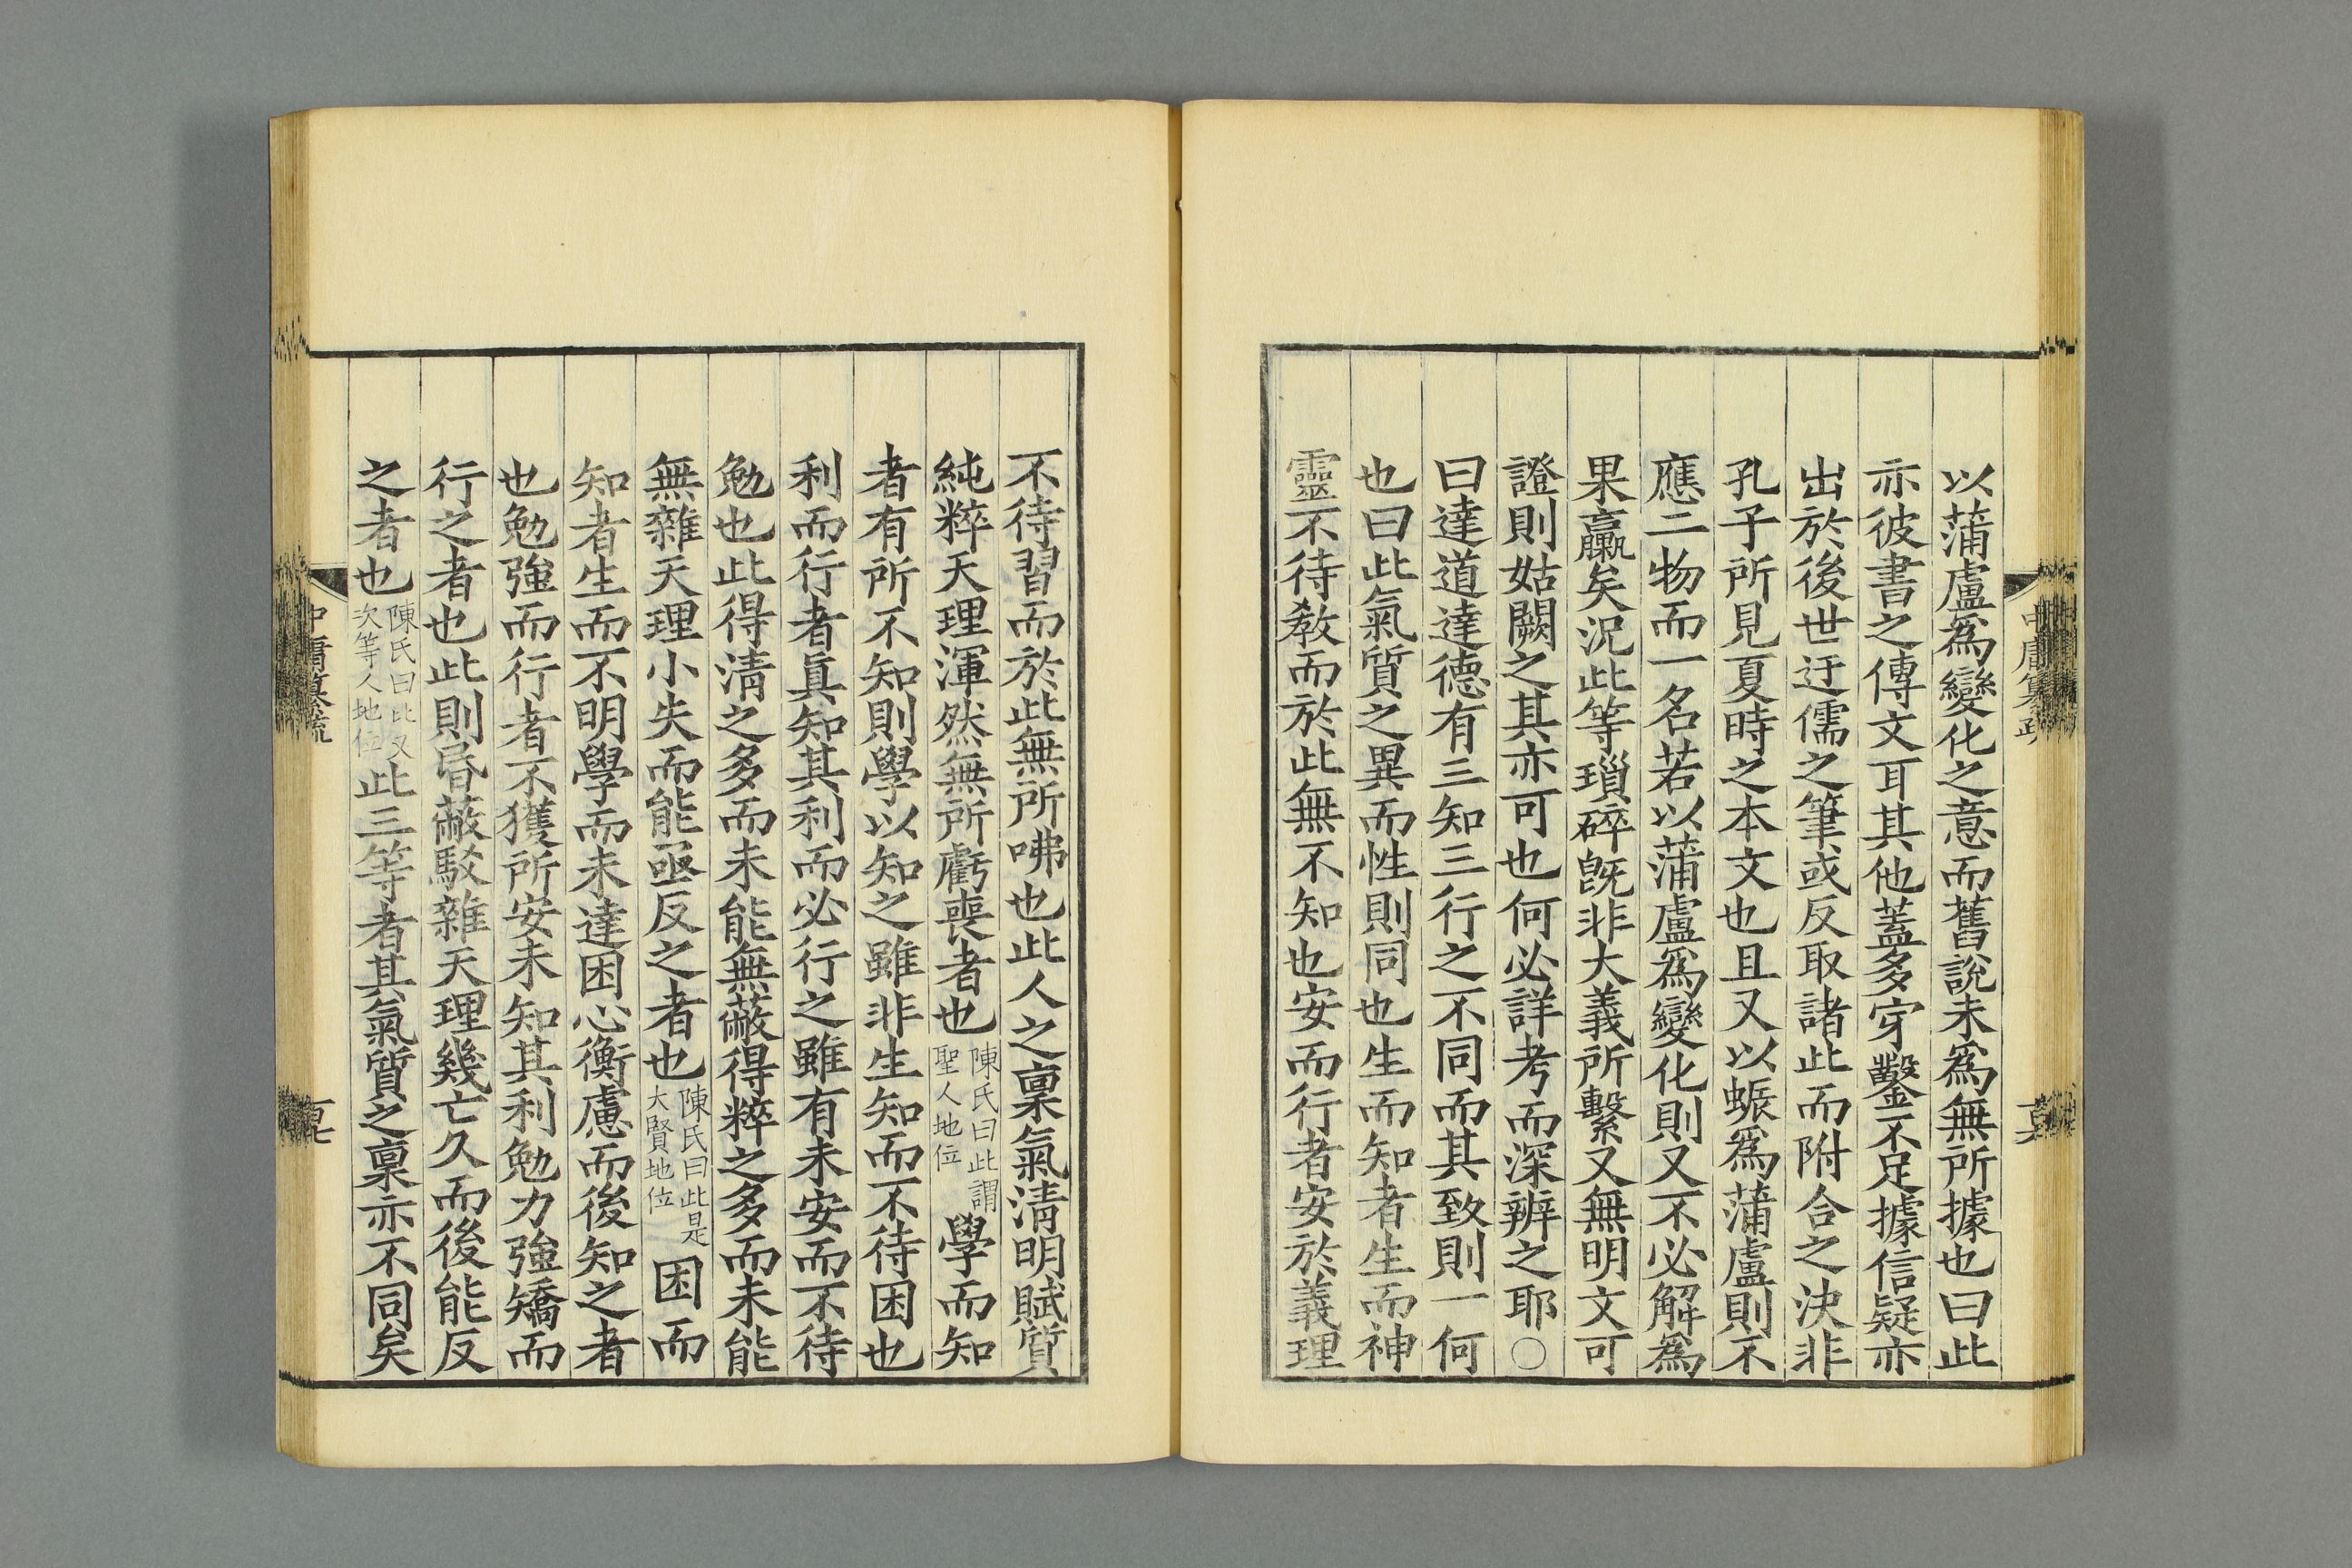 以蒲盧爲變化之意而舊說未爲無所據也曰此
亦彼書之傳文耳其他蓋多穿鑿不足據信疑亦
出於後世迂儒之筆或反取諸此而附合之決非
孔子所見夏時之本文也且又以蜃爲蒲盧則不
應二物而一名若以蒲盧爲變化則又不必解爲
果蠃矣況此等瑣碎旣非大義所繫又無明文可
證則姑闕之其亦可也何必詳考而深辨之耶○
曰達道達德有三知三行之不同而其致則一何
也曰此氣質之異而性則同也生而知者生而神
靈不待敎而於此無不知也安而行者安於義理
不待習而於此無所咈也此人之稟氣淸明賦質
純粹天理渾然無所虧喪者也陳氏曰此謂聖人地位學而知
者有所不知則學以知之雖非生知而不待困也
利而行者眞知其利而必行之雖有未安而不待
勉也此得淸之多而未能無蔽得粹之多而未能
無雜天理小失而能亟反之者也陳氏曰此是大賢地位困而
知者生而不明學而未達困心衡慮而後知之者
也勉強而行者不獲所安未知其利勉力強矯而
行之者也此則昏蔽駁雜天理幾亡久而後能反
之者也陳氏曰此又次等人地位此三等者其氣質之稟亦不同矣